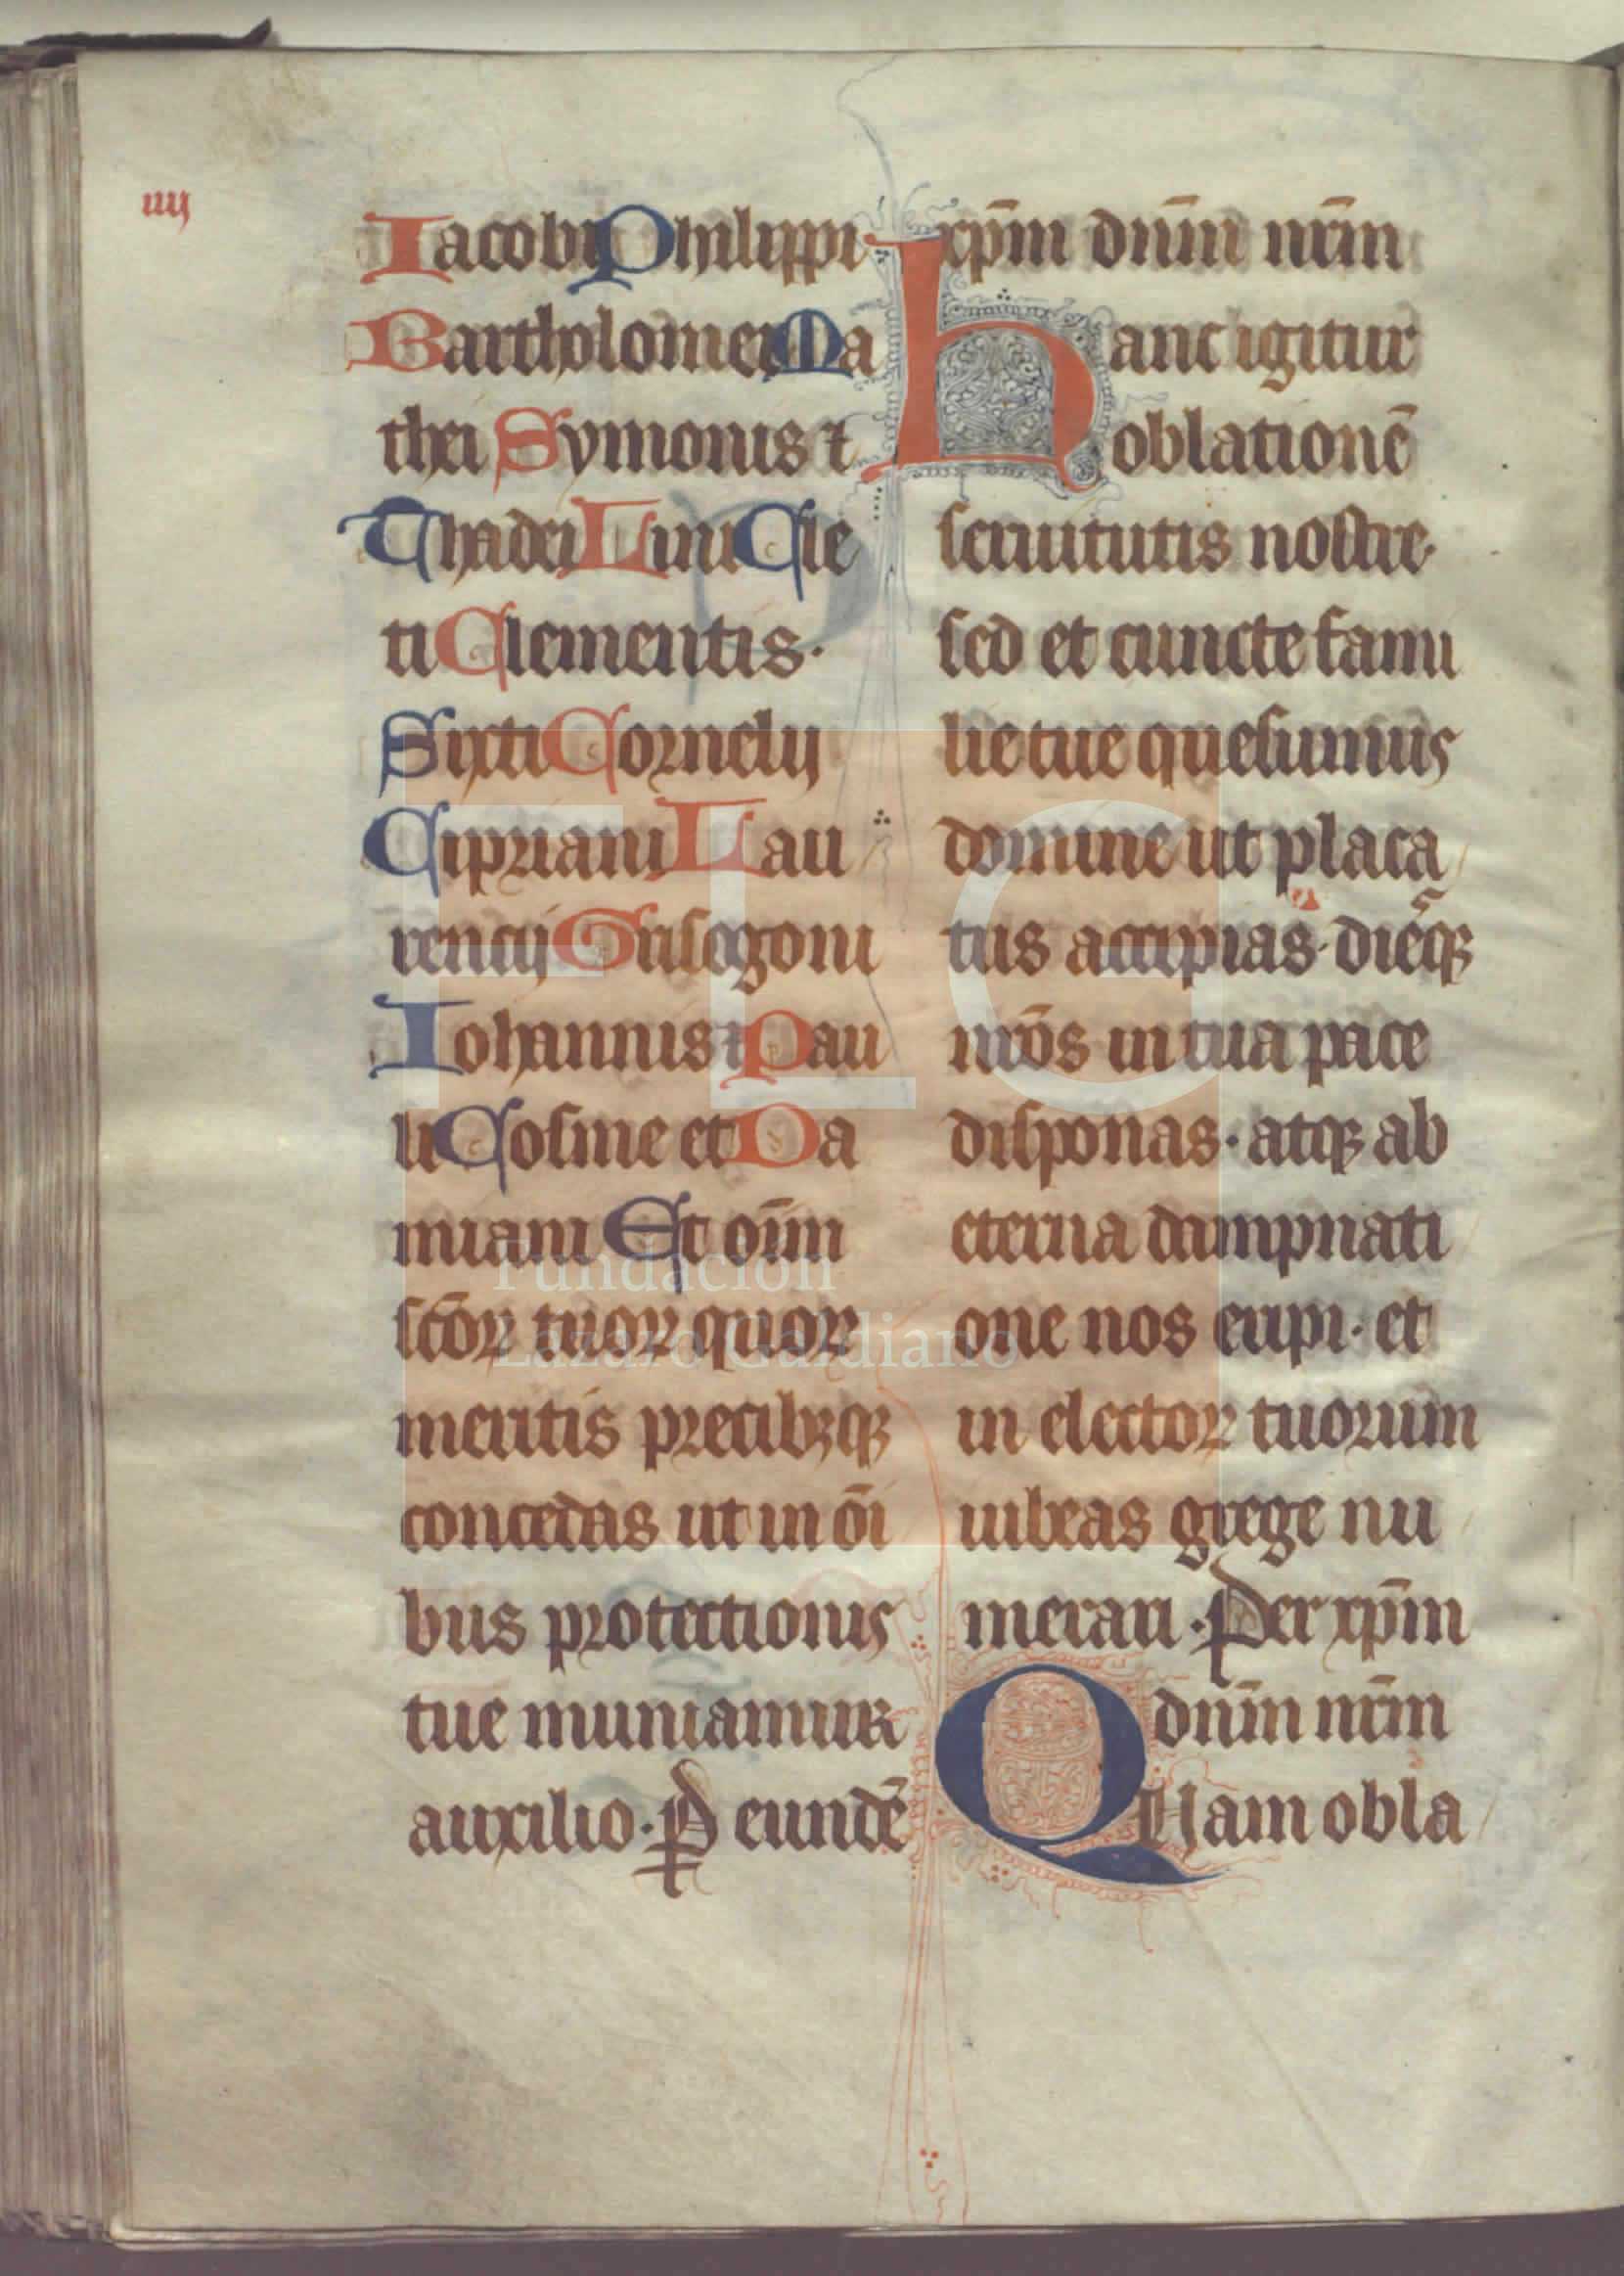 iiij
Iacobi Philippi
Bartholomei Ma
thei Symonis ⁊
Thadei Lini Cle
ti Clementis·
Sixti Cornelij
Cipriani Lau
rencij Grisogoni
Iohannis ⁊ Pau
li Cosme et Da
miani Et oīm
sc̄oꝝ tuoꝝ quoꝝ
meritis precibꝫqꝫ
concedas ut in ōi
bus protectionis
tue muniamur
auxilio· P̱ eundē
xp̄m dn̄m nr̄m
Hanc igitur
oblationē
seruitutis nostre·
sed et cuncte fami
lie tue quesumus
domine ut placa
tus accipias· diesqꝫ
nr̄os in tua pace
disponas· atqꝫ ab
eterna dampnati
one nos eripi· et
in electoꝝ tuorum
iubeas grege nu
merari· Per xp̄m
dn̄m nr̄m
QUam obla
FLG
Fundación
Lázaro Galdiano